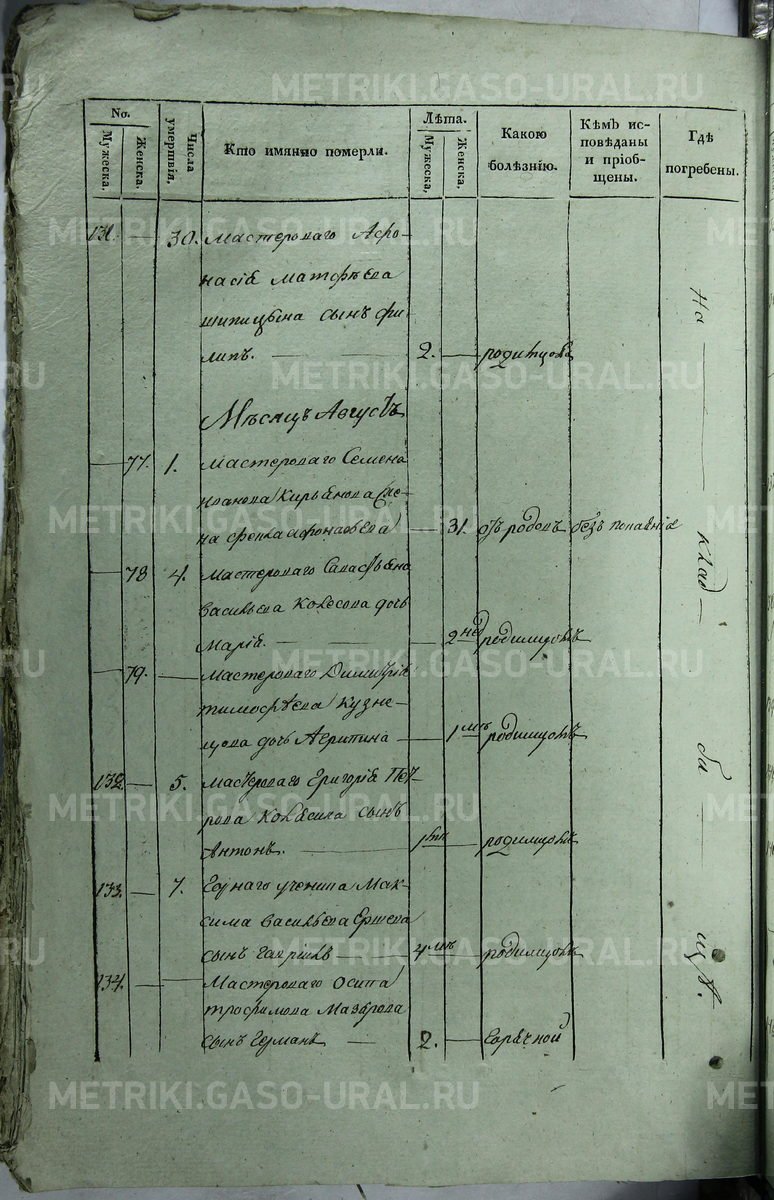 No.
Мужеска.
Женска.
Числа умертвія.
Кто имянно померли.
Лѣта.
Мужеска,
Женска.
Какою болѣзнію.
Кѣмъ исповѣданы и пріобщены.
Гдѣ погребены.
131. — 30. Мастероваго Афо-
насія Матфѣева
шипицына сынъ фи-
липъ. — 2. — родимцомъ
Мѣсяцъ Августъ
— 77. 1. Мастероваго Семена
Иванова Кирьянова
— 31. отъ родовъ безъ покаянія
— 78 4. Мастероваго
васильева Колесова дочь
Марія. — 2 нед родимцомъ
— 79. — Мастероваго Димитрія
тимофѣева Кузне-
цова дочь Агрипина — 1 мѣ родимцомъ
132. — 5. Мастероваго Григорія Пет-
рова сынъ
Антонъ. — родимцомъ
133. — 7. ученика Мак-
сима васильева Ершева
сынъ гаврилъ — 4 мѣ родимцомъ
134. — — Мастероваго Осипа
трофимова
сынъ германъ — 2. — горячкой
На клад-
би
щѣ.
METRIKI.GASO-URAL.RU